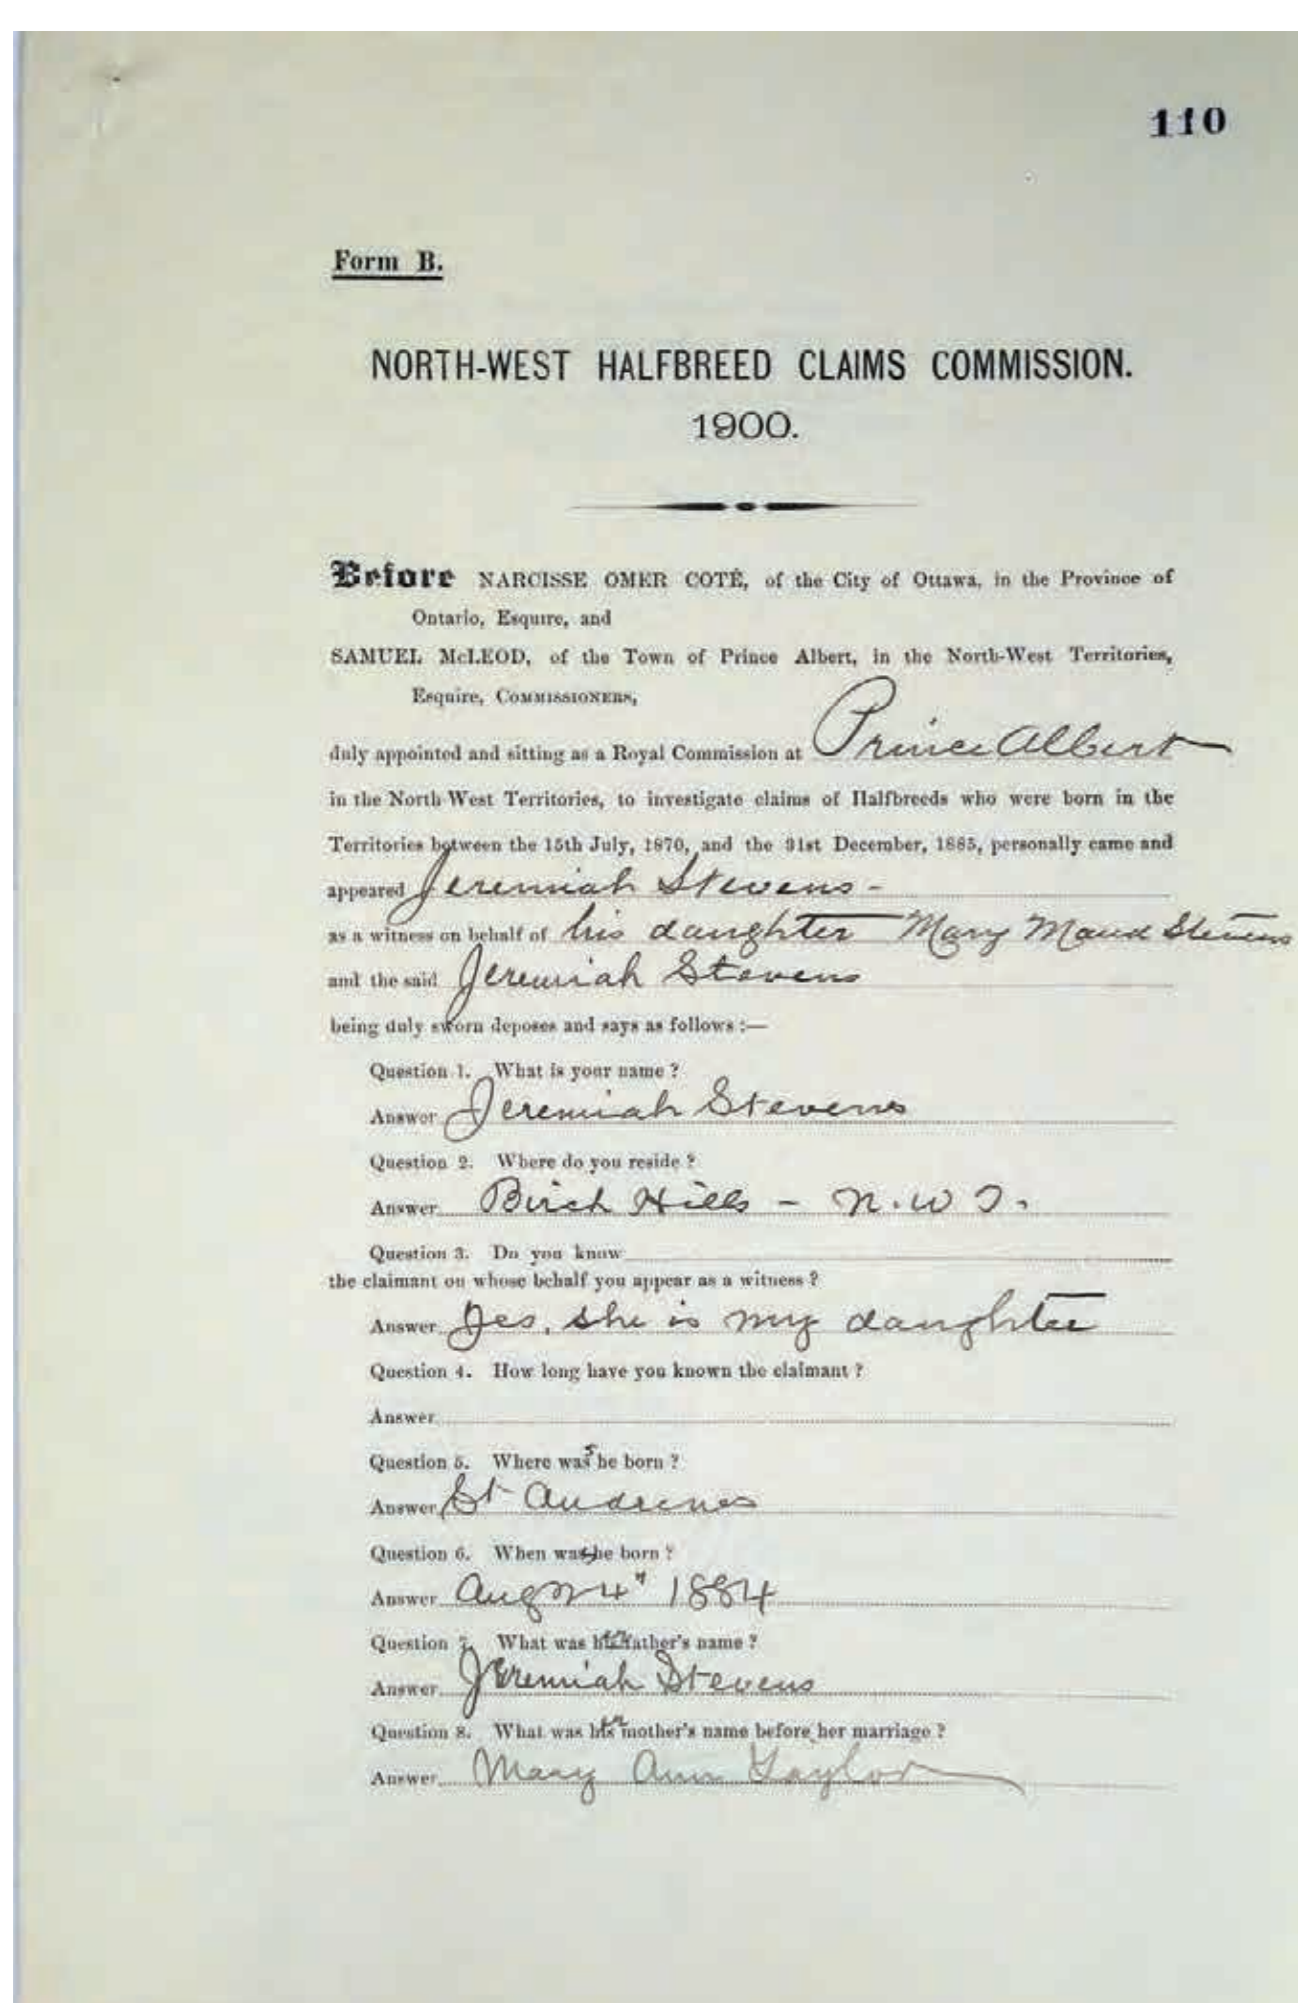 110
Form B.
NORTH-WEST HALFBREED CLAIMS COMMISSION.
1900.
Before NARCISSE OMER COTÉ, of the City of Ottawa, in the Province of
Ontario, Esquire, and
SAMUEL McLEOD, of the Town of Prince Albert, in the North-West Territories,
Esquire, COMMISSIONERS,
duly appointed and sitting as a Royal Commission at Prince Albert
in the North West Territories, to investigate claims of Halfbreeds who were born in the
Territories between the 15th July, 1870, and the 31st December, 1885, personally came and
appeared Jeremiah Stevens -
as a witness on behalf of his daughter Mary Maud Stevens
and the said Jeremiah Stevens
being duly sworn deposes and says as follows :—
Question 1. What is your name ?
Answer Jeremiah Stevens
Question 2. Where do you reside ?
Answer Birch Hills - N.W.T.
Question 3. Do you know
the claimant on whose behalf you appear as a witness ?
Answer Yes, she is my daughter
Question 4. How long have you known the claimant ?
Answer
Question 5. Where was she born ?
Answer St Andrews
Question 6. When was she born ?
Answer Aug 24" 1884
Question 7. What was her father's name ?
Answer Jeremiah Stevens
Question 8. What was her mother's name before her marriage ?
Answer Mary Ann Taylor